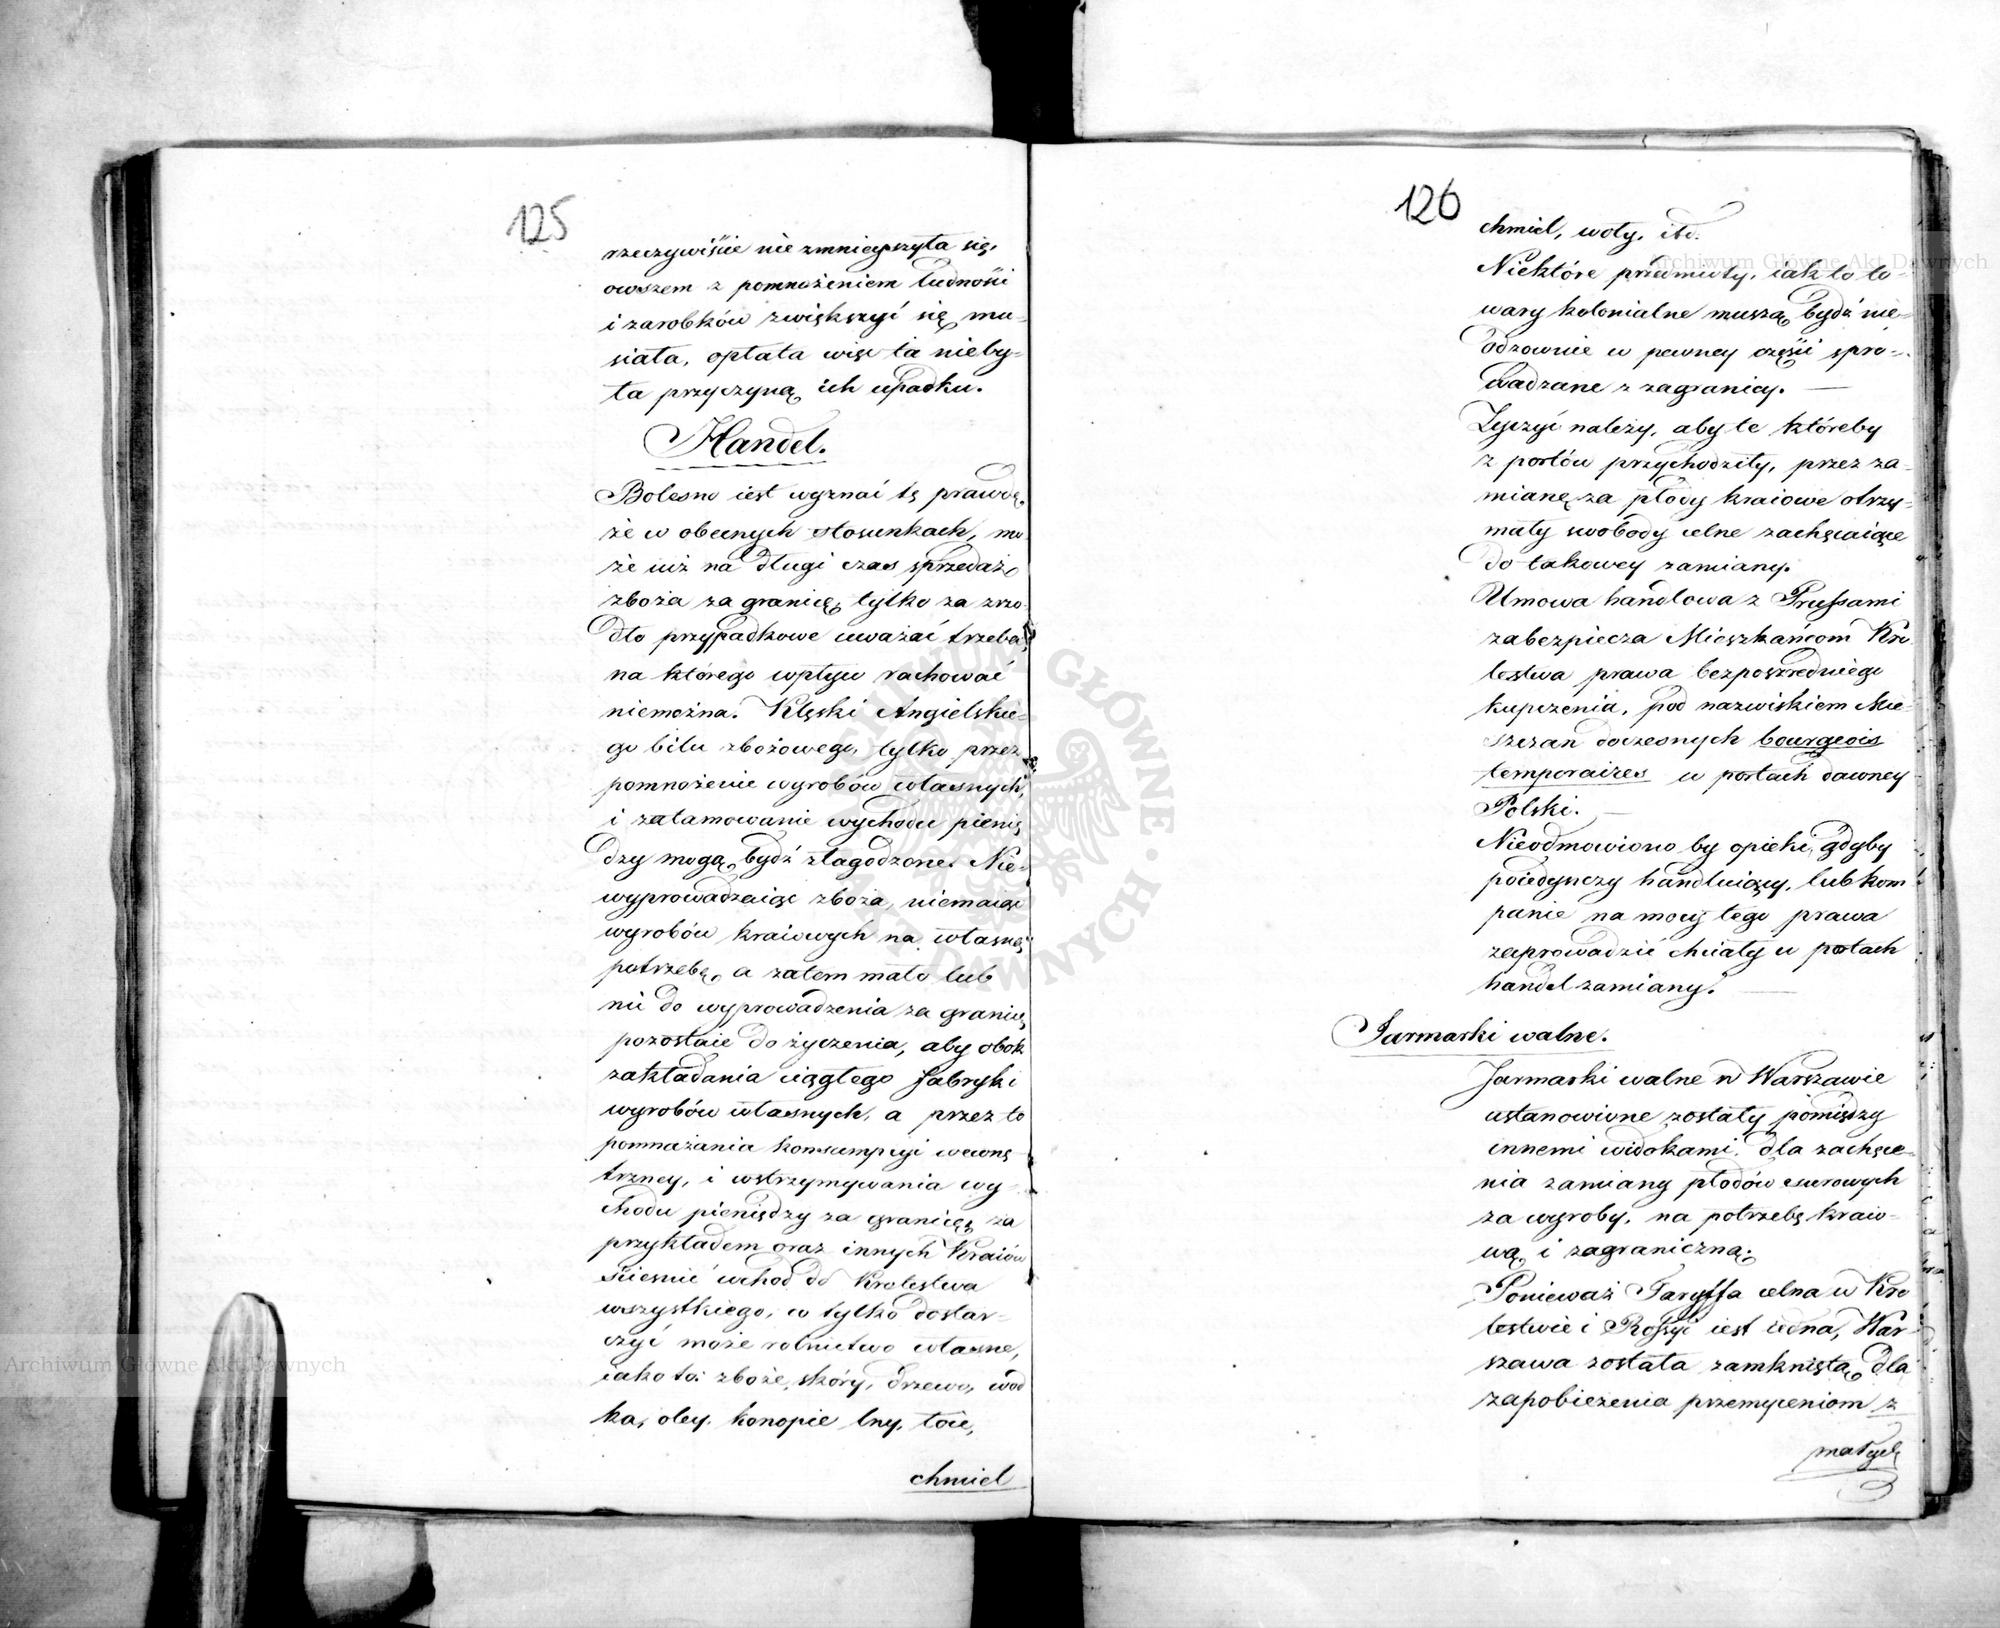 125
rzeczywiście nie zmnieyszyła się,
owszem z pomnożeniem ludności
i zarobków zwiększyć się mu-
siała, opłata więc ta nieby-
ła przyczyną ich upadku.
Handel.
Bolesno iest wyznać tę prawdę,
że w obecnych stosunkach, mo-
że iuż na długi czas sprzedaż
zboża za granicę, tylko za zrzo-
dło przypadkowe uważać trzeba,
na którego wpływ rachować
niemożna. Klęski Angielskie-
go bilu zbożowego, tylko przez
pomnożenie wyrobów własnych,
i zatamowanie wychodu pienię
dzy mogą bydź złagodzone. Nie-
wyprowadzaiąc zboża, niemaiąc
wyrobów kraiowych na własną
potrzebę, a zatem mało lub
nic do wyprowadzenia za granicę
pozostaie do życzenia, aby obok
zakładania ciągłego fabryk i
wyrobów własnych, a przez to
pomnażania konsumpcyi wewnę-
trzney, i wstrzymywania wy-
chodu pieniędzy za granicę, za
przykładem oraz innych Kraiów
ścieśnić wchod do Krolestwa
wszystkiego, co tylko dostar-
czyć może rolnictwo własne,
iako to: zboże, skóry, drzewo, wod
ka, oley, konopie lny, łoie,
chmiel
126
chmiel, woły, itd.
Niektóre przedmioty, iak to to-
wary kolonialne muszą bydź nie-
odzownie w pewney części spro-
wadzane z zagranicy.
Życzyć należy, aby te któreby
z portów przychodziły, przez za-
mianę za płody kraiowe otrzy-
mały swobody celne zachęcaiące
do takowey zamiany.
Umowa handlowa z Prussami
zabezpiecza Mieszkańcom Kro
lestwa prawa bezpośredniego
kupczenia, pod nazwiskiem Mie-
szczan doczesnych bourgeois
temporaires w portach dawney
Polski.
Nieodmowiono by opieki, gdyby
poiedynczy handluiący, lub kom
panie na mocy tego prawa
zaprowadzić chciały w portach
handel zamiany.
Jarmarki walne.
Jarmarki walne w Warszawie
ustanowione zostały pomiędzy
innemi widokami, dla zachęce-
nia zamiany płodów surowych
za wyroby, na potrzebę kraio-
wą i zagraniczną.
Ponieważ Taryffa celna w Kro
lestwie i Rossyi iest iedna, War-
szawa została zamkniętą, dla
zapobieżenia przemyceniom z
małych
Archiwum Główne Akt Dawnych
Archiwum Główne Akt Dawnych
ARCHIWUM GŁÓWNE AKT DAWNYCH